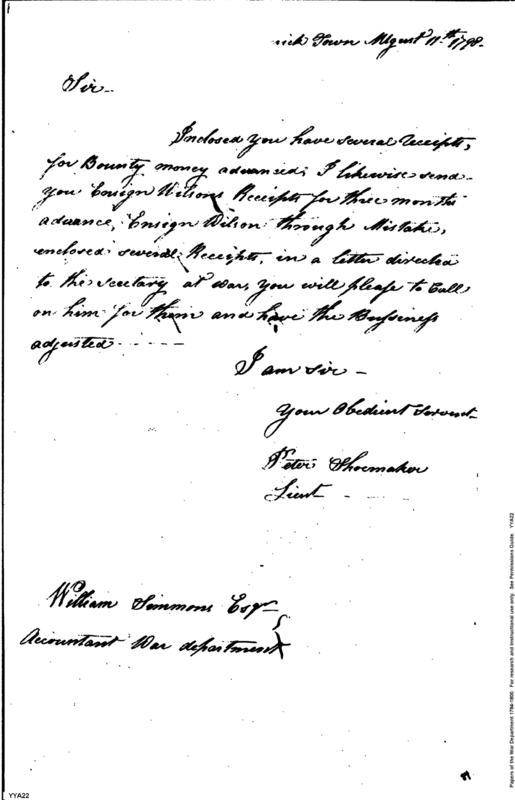 Town Agust 11.th 1798.
Sir
Inclosed you have several receipts,
for Bounty money advanced; I likewise send
you Ensign Wilsons Receipts for three months
advance, Ensign Wilson through Mistake,
enclosed several Receipts, in a letter directed
to the secretary at war, you will please to Call
on him for them and have the Bussiness
adjusted
I am sir
your Obedient Servent
Peter Shoemaker
Lieut
William Simmons Esqr
Accountant War department
YYA22
Papers of the War Department 1784-1800. For research and instructional use only. See Permissions Guide. YYA22